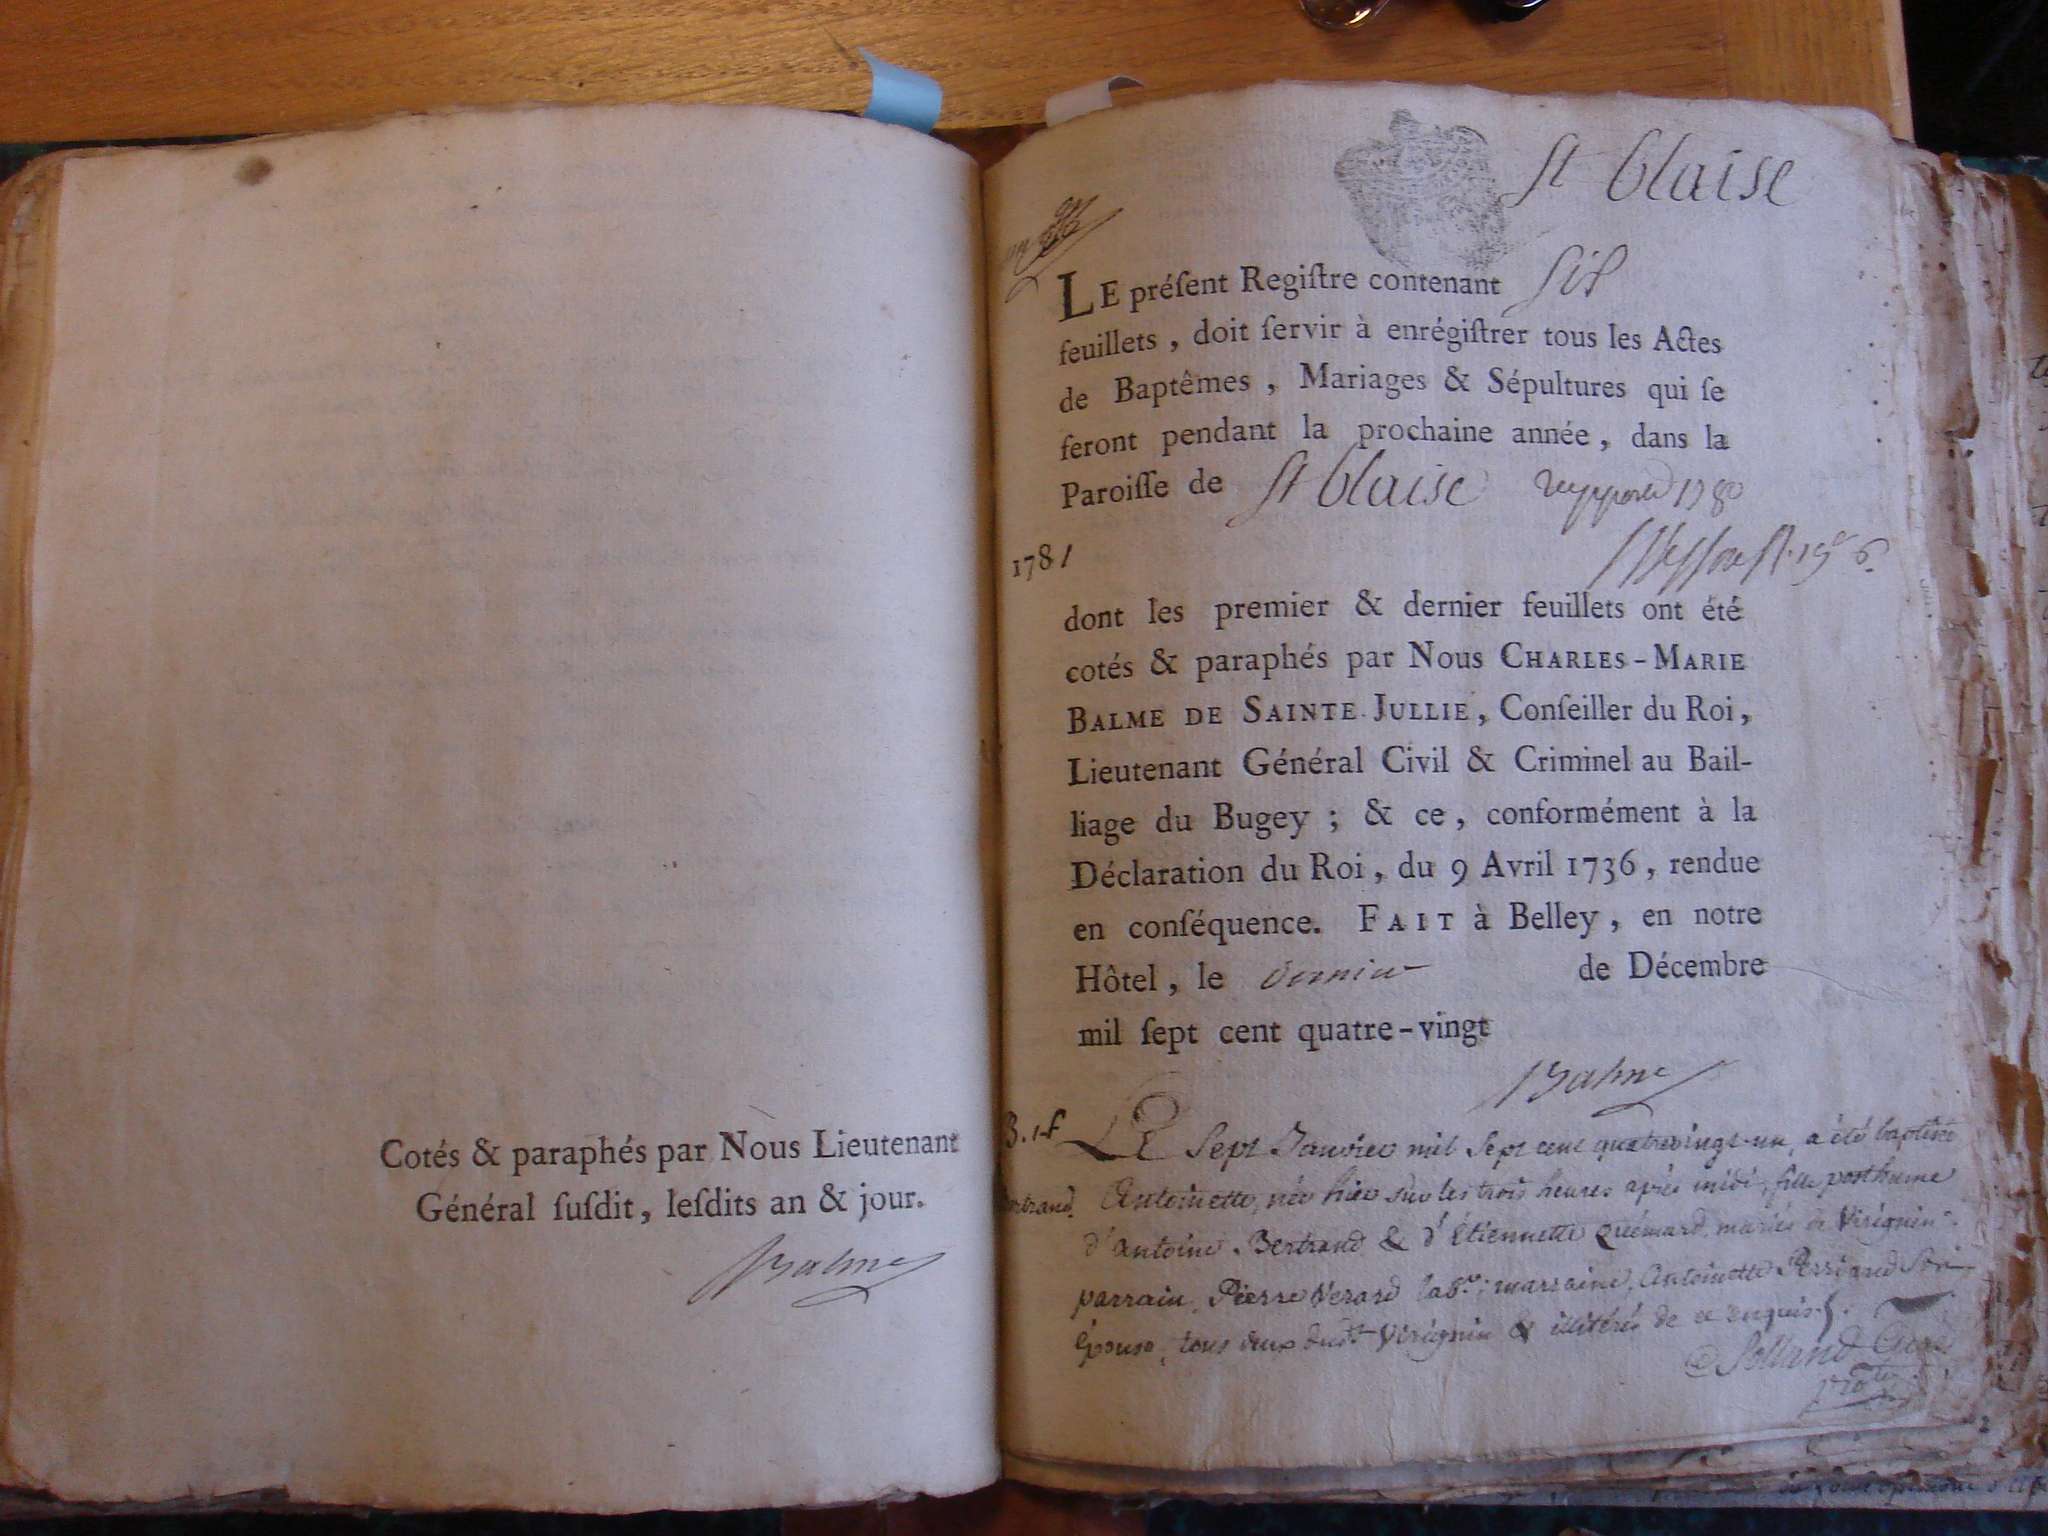 Cotés & paraphés par Nous Lieutenant
Général ſuſdit, leſdits an & jour.
Balme
St blaise
LE préſent Regiſtre contenant six
feuillets, doit ſervir à enrégiſtrer tous les Actes
de Baptêmes, Mariages & Sépultures qui ſe
feront pendant la prochaine année, dans la
Paroiſſe de St blaise 1780
1781
dont les premier & dernier feuillets ont été
cotés & paraphés par Nous CHARLES-MARIE
BALME DE SAINTE JULLIE, Conſeiller du Roi,
Lieutenant Général Civil & Criminel au Bail-
liage du Bugey ; & ce, conformément à la
Déclaration du Roi, du 9 Avril 1736, rendue
en conſéquence. FAIT à Belley, en notre
Hôtel, le dernier de Décembre
mil ſept cent quatre-vingt
Balme
B. 1-f Le Sept Janvier mil Sept cent quatrevingt-un, a été baptisée
Bertrand. Antoinette, née hier sur les trois heures après midi, fille posthume
d'antoine Bertrand & d'Etiennette Quémard, mariés de Virignin.
parrain, Pierre Verard lab.r; marraine, Antoinette Perrigard Son
Epouse, tous deux dudt Virignin & illitérés de ce enquis.
Solland Curé